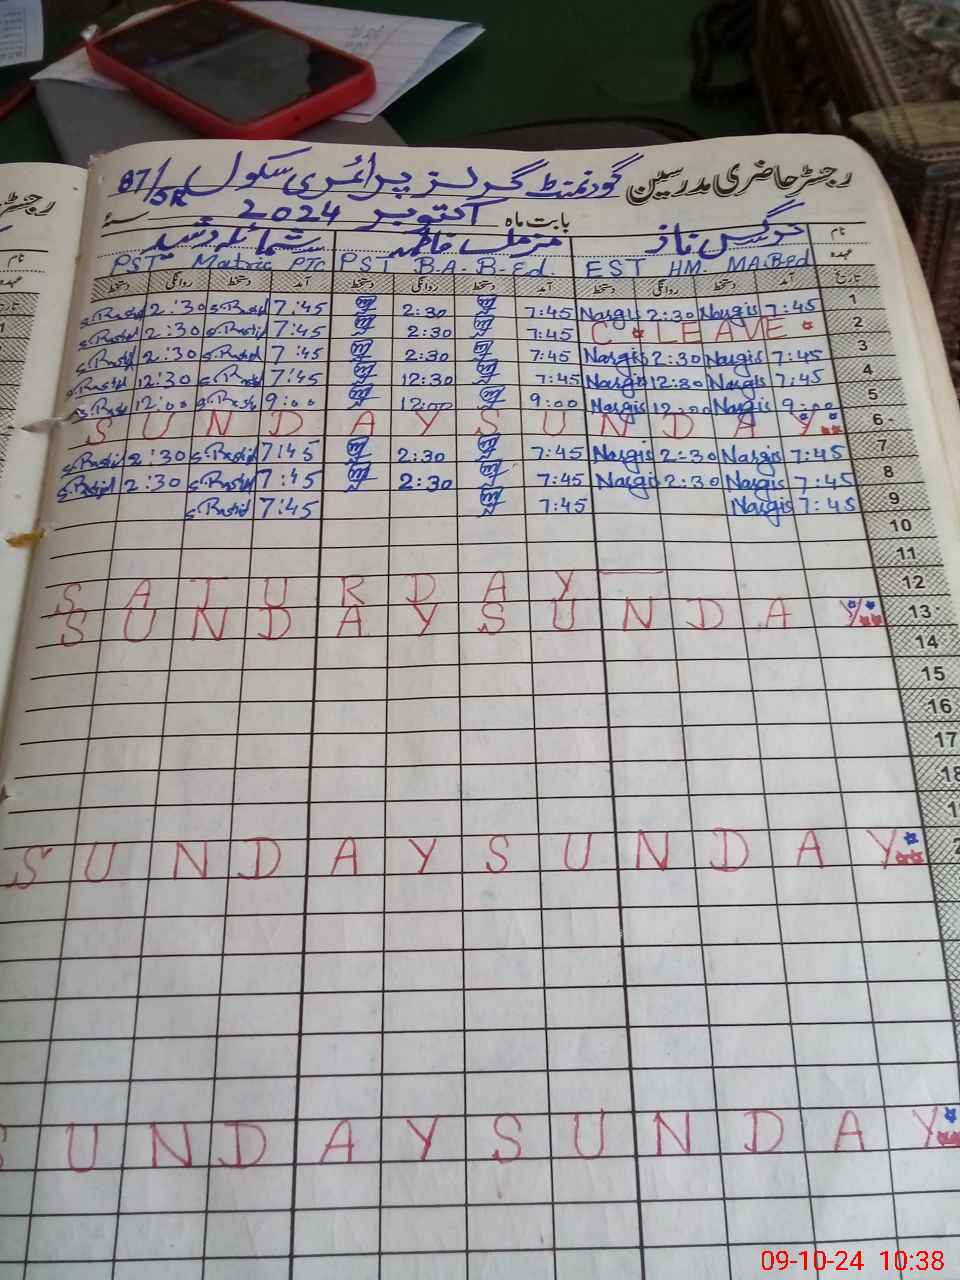 رجسٹر حاضری مدرسین گورنمنٹ گرلز پرائمری سکول 87/5R
بابت ماہ اکتوبر 2024 سنہ
نام نرگس ناز مزمل فاطمہ شمائلہ رشید
عہدہ
PST Matric PTC PST B.A. B-Ed. EST HM. MA.Bed
دستخط روانگی دستخط آمد دستخط روانگی دستخط آمد دستخط روانگی دستخط آمد تاریخ
S.Rashid 2:30 S.Rashid 7:45 2:30 7:45 Nargis 2:30 Nargis 7:45 1
S.Rashid 2:30 S.Rashid 7:45 2:30 7:45 C LEAVE 2
S.Rashid 2:30 S.Rashid 7:45 2:30 7:45 Nargis 2:30 Nargis 7:45 3
S.Rashid 12:30 S.Rashid 7:45 12:30 7:45 Nargis 12:30 Nargis 7:45 4
S.Rashid 12:00 S.Rashid 9:00 12:00 9:00 Nargis 12:00 Nargis 9:00 5
SUNDAY SUNDAY 6
S.Rashid 2:30 S.Rashid 7:45 2:30 7:45 Nargis 2:30 Nargis 7:45 7
S.Rashid 2:30 S.Rashid 7:45 2:30 7:45 Nargis 2:30 Nargis 7:45 8
S.Rashid 7:45 7:45 Nargis 7:45 9
10
11
SATURDAY 12
SUNDAY SUNDAY 13
14
15
16
17
18
SUNDAY SUNDAY
SUNDAY SUNDAY
09-10-24 10:38